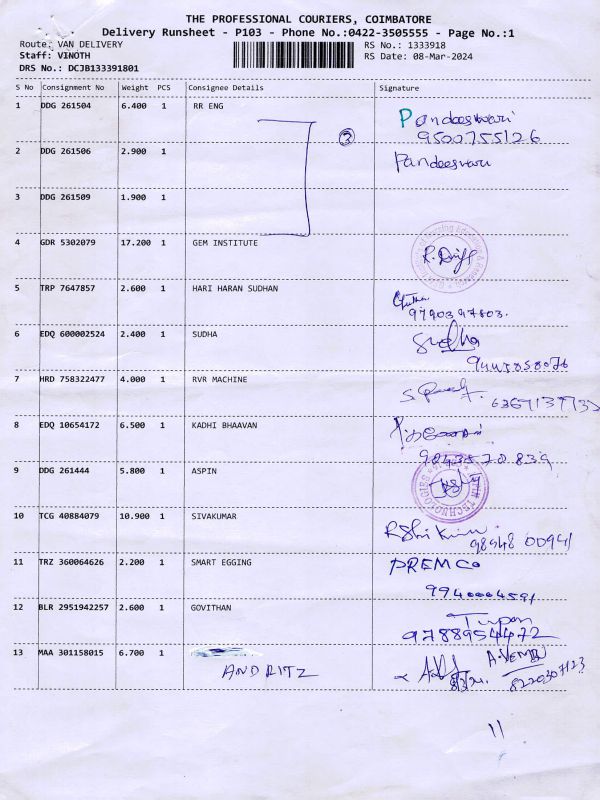 THE PROFESSIONAL COURIERS, COIMBATORE
Delivery Runsheet - P103 - Phone No.:0422-3505555 - Page No.:1
Route: VAN DELIVERY RS No.: 1333918
Staff: VINOTH RS Date: 08-Mar-2024
DRS No.: DCJB133391801
S No Consignment No Weight PCS Consignee Details Signature
1 DDG 261504 6.400 1 RR ENG Pandeeswari
9500755126
2 DDG 261506 2.900 1 Pandeeswari
3 DDG 261509 1.900 1
4 GDR 5302079 17.200 1 GEM INSTITUTE
5 TRP 7647857 2.600 1 HARI HARAN SUDHAN
9790397803.
6 EDQ 600002524 2.400 1 SUDHA Sudha
7 HRD 758322477 4.000 1 RVR MACHINE
8 EDQ 10654172 6.500 1 KADHI BHAAVAN
9843570839
9 DDG 261444 5.800 1 ASPIN
10 TCG 40884079 10.900 1 SIVAKUMAR
98948 00941
11 TRZ 360064626 2.200 1 SMART EGGING PREMCO
9940004591
12 BLR 2951942257 2.600 1 GOVITHAN
9788954472
13 MAA 301158015 6.700 1 A.VEMBU
ANDRITZ 8220307123
11